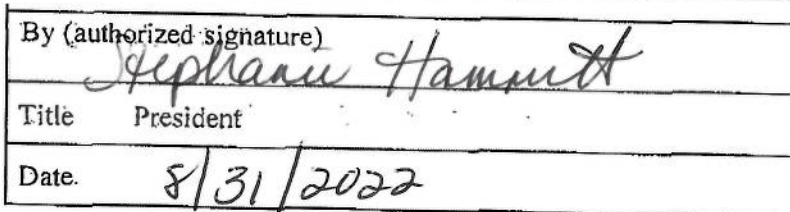 By (authorized signature)
Stephanie Hammitt
Title President
Date. 8/31/2022